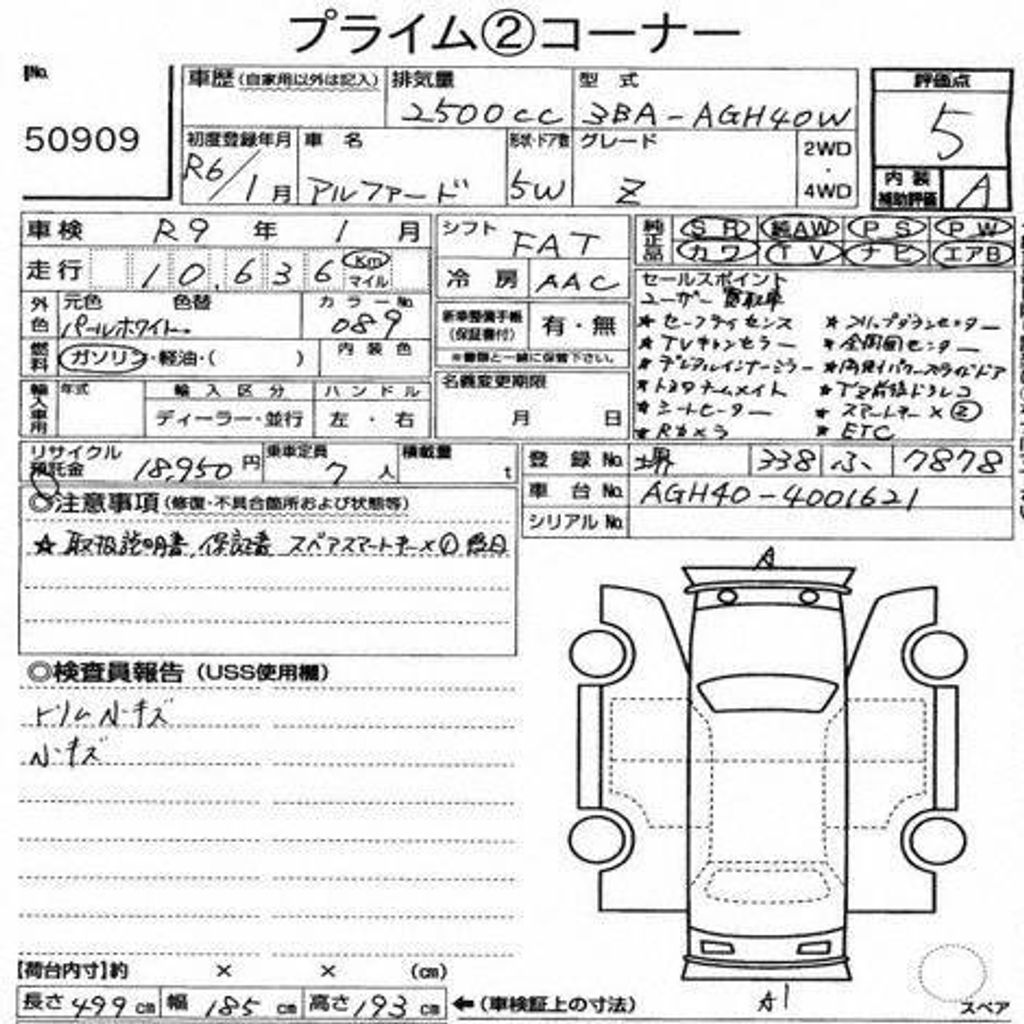 プライム②コーナー
No.
50909
車歴(自家用以外は記入) 排気量 型式 評価点
2500cc 3BA-AGH40W 5
初度登録年月 車名 形状・ドア数 グレード 2WD
R6/1月 アルファード 5W Z 4WD
内装補助評価 A
車検 R9年 1月 シフト FAT
純正品 SR 純AW PS PW
カワ TV ナビ エアB
走行 10,636 Km マイル
冷房 AAC
外色 元色 色替 カラーNo.
パールホワイト 089
新車整備手帳(保証書付) 有・無
※書類と一緒に保管下さい。
燃料 ガソリン・軽油・( ) 内装色
セールスポイント
ユーザー買取車
★セーフライセンス ★フリップダウンモニター
★TVキャンセラー ★全周囲モニター
★デジタルインナーミラー ★両側パワースライドドア
★トヨタチームメイト ★TZ前後ドラレコ
★シートヒーター ★スマートキー×②
★Rカメラ ★ETC
輸入車用 年式 輸入区分 ハンドル
ディーラー・並行 左・右
名義変更期限
月 日
リサイクル預託金 18,950円 乗車定員 7人 積載量 t
登録No. 堺 338 ふ 7878
車台No. AGH40-4001621
シリアルNo.
◎注意事項(修復・不具合箇所および状態等)
★取扱説明書、保証書 スペアスマートキー×① 後日
◎検査員報告(USS使用欄)
トリムN・キズ
N・キズ
A
A1
【荷台内寸】約 × × (cm)
長さ 499cm 幅 185cm 高さ 193cm ←(車検証上の寸法)
スペア